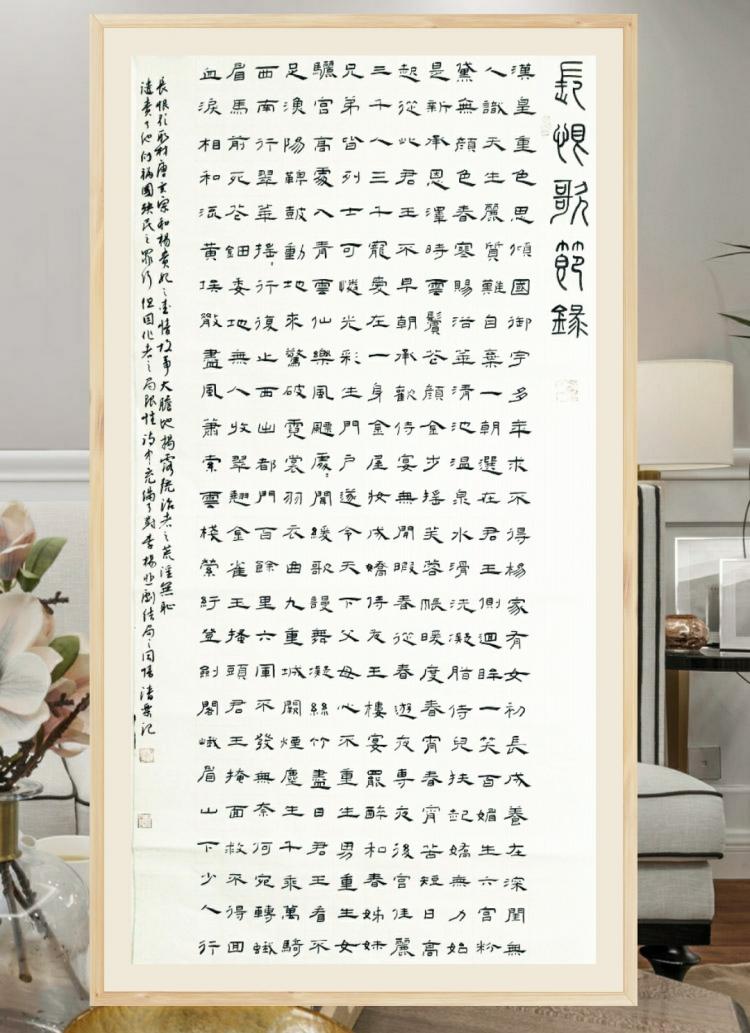 長恨歌節錄
漢皇重色思傾國御宇多年求不得楊家有女初長成養在深閨無
人識天生麗質難自棄一朝選在君王側迴眸一笑百媚生六宮粉
黛無顏色春寒賜浴華清池溫泉水滑洗凝脂侍兒扶起嬌無力始
是新承恩澤時雲鬢花顏金步搖芙蓉帳暖度春宵春宵苦短日高
起從此君王不早朝承歡侍宴無閒暇春從春遊夜專夜後宮佳麗
三千人三千寵愛在一身金屋妝成嬌侍夜玉樓宴罷醉和春姊妹
兄弟皆列士可憐光彩生門戶遂令天下父母心不重生男重生女
驪宮高處入青雲仙樂風飄處〻聞緩歌謾舞凝絲竹盡日君王看不
足漁陽鼙鼓動地來驚破霓裳羽衣曲九重城闕煙塵生千乘萬騎
西南行翠華搖〻行復止西出都門百餘里六軍不發無奈何宛轉蛾
眉馬前死花鈿委地無人收翠翹金雀玉搔頭君王掩面救不得回
血淚相和流黃埃散盡風蕭索雲棧縈紆登劍閣峨眉山下少人行
長恨歌取材唐玄宗和楊貴妃之愛情故事大膽地揭露統治者之荒淫無恥
譴責了他们禍國殃民之罪行但因作者之局限性詩中充滿了對李楊悲劇結局之同情